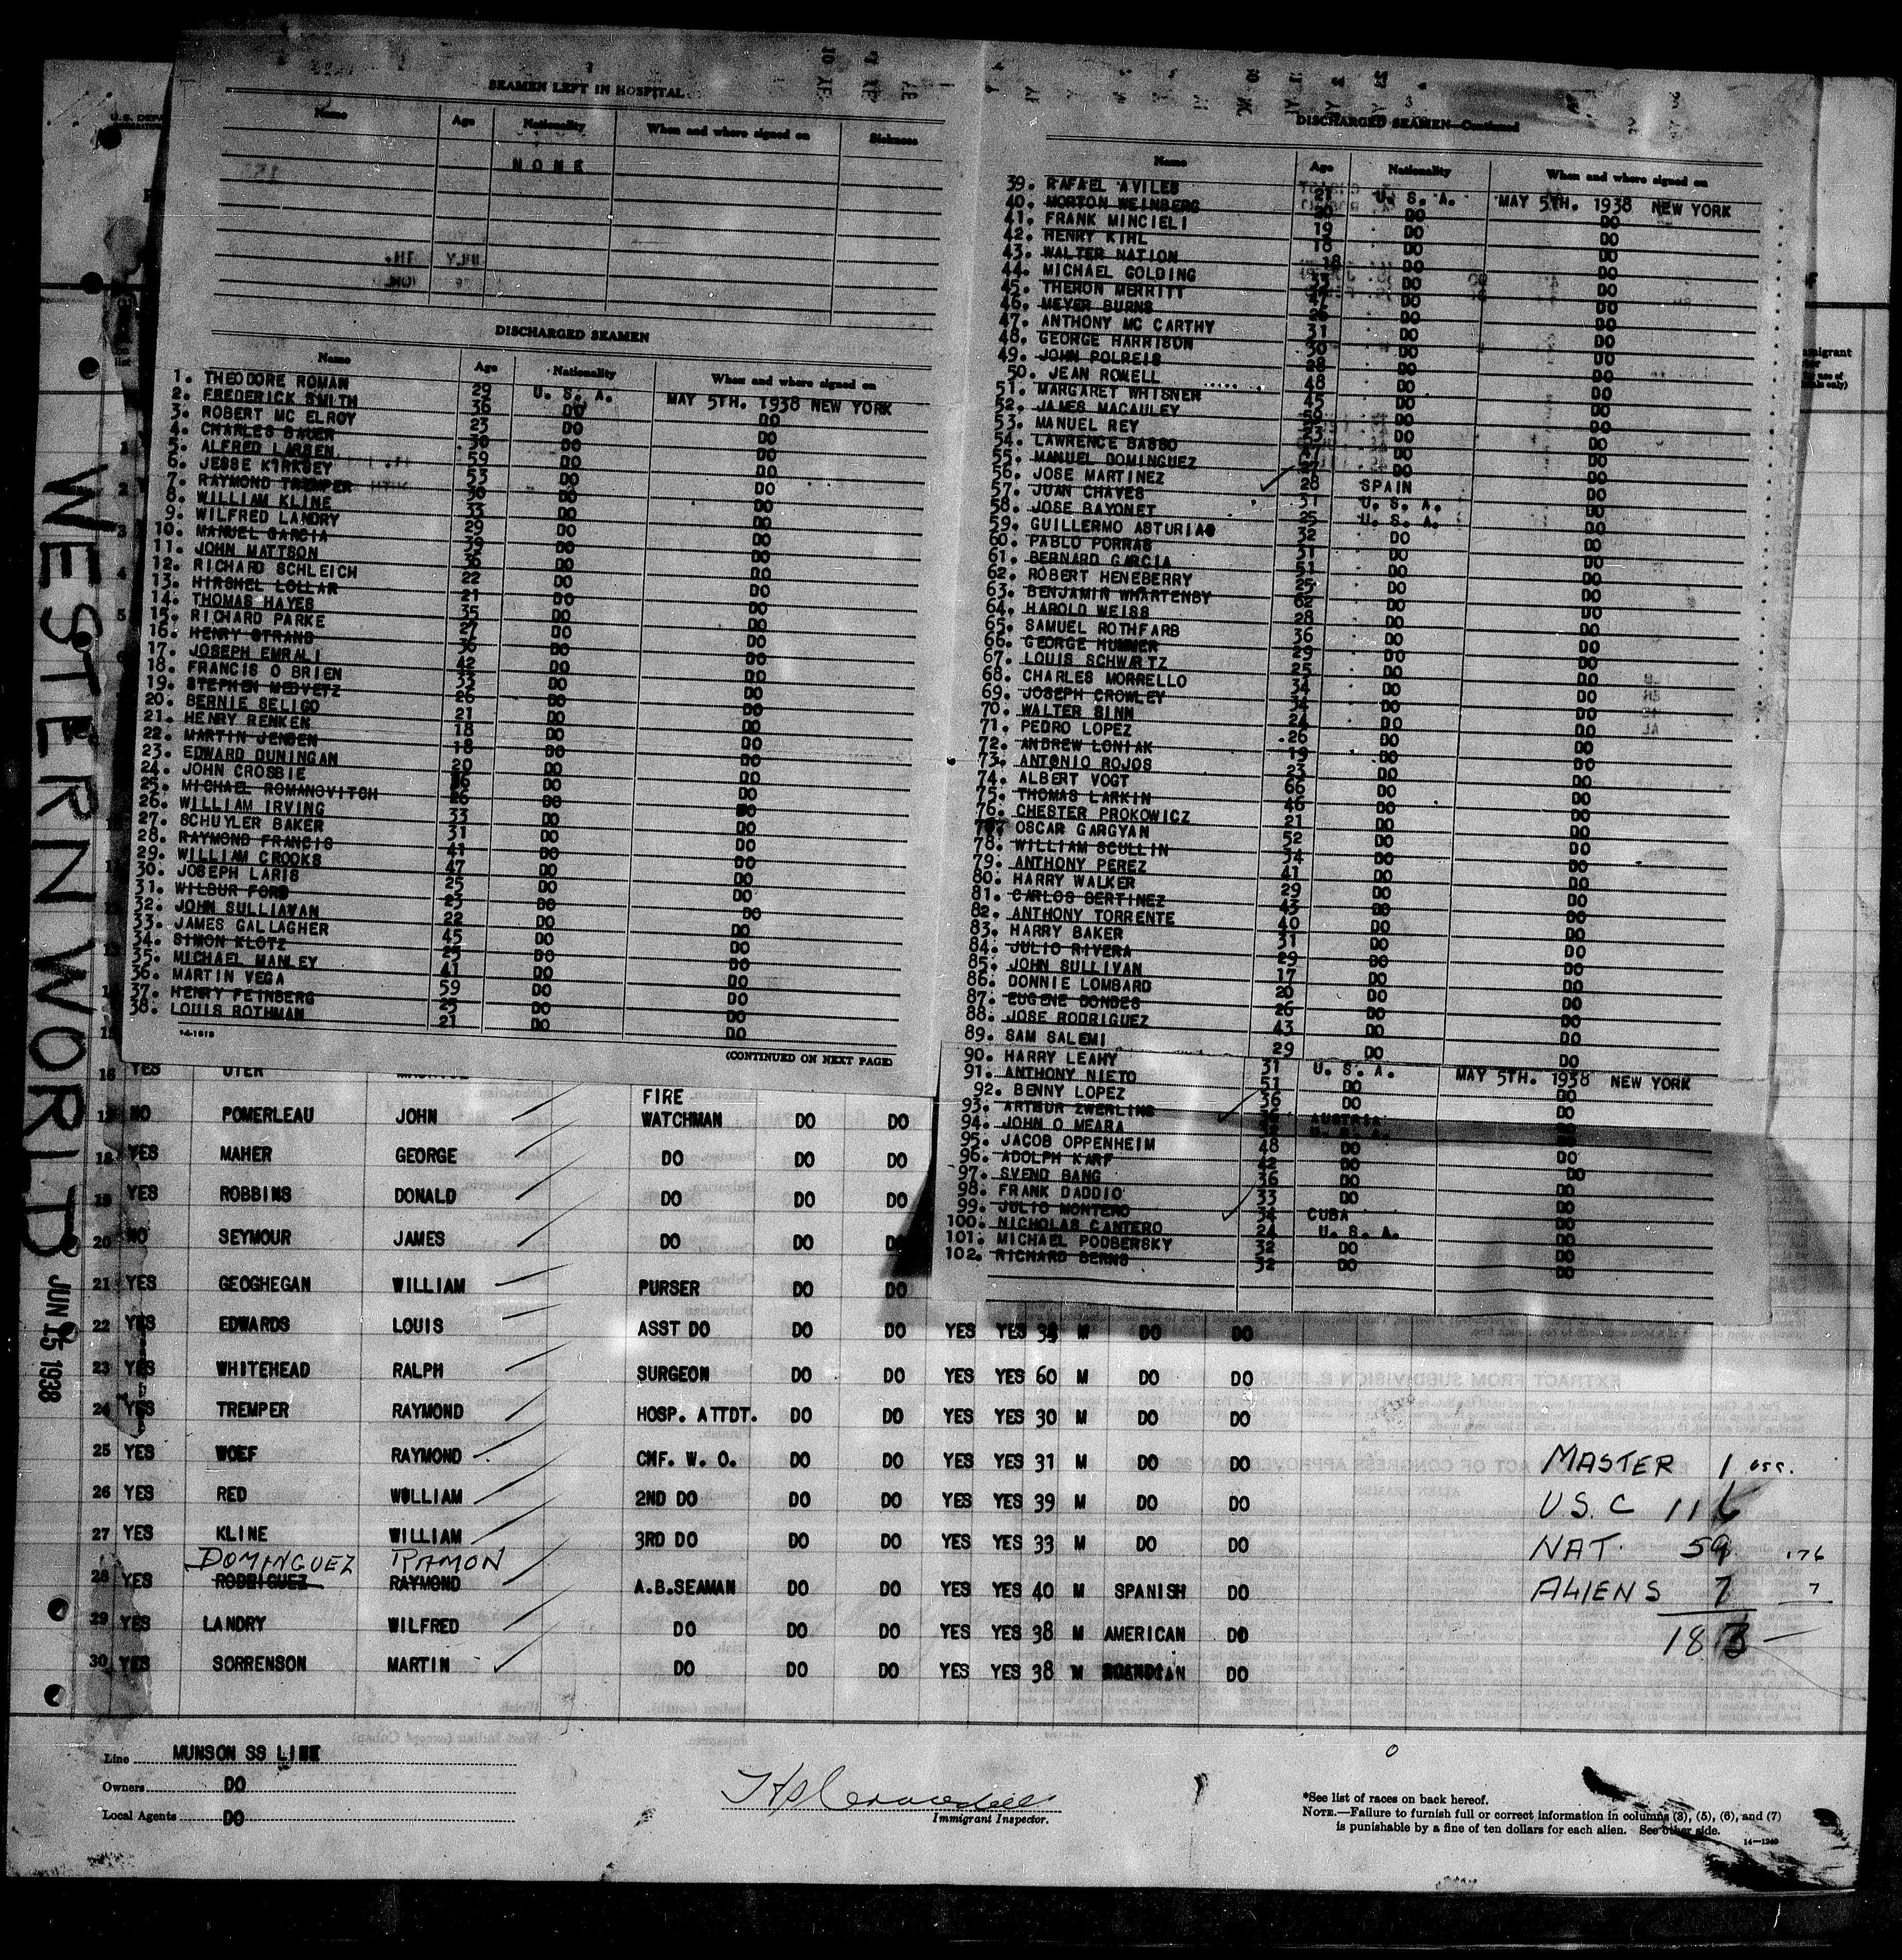 SEAMEN LEFT IN HOSPITAL
Name Age Nationality When and where signed on Sickness
NONE
DISCHARGED SEAMEN
Name Age Nationality When and where signed on
1. THEODORE ROMAN 29 U. S. A. MAY 5TH. 1938 NEW YORK
2. FREDERICK SMITH 36 DO DO
3. ROBERT MC ELROY 23 DO DO
4. CHARLES BAUER 30 DO DO
5. ALFRED LARSEN 59 DO DO
6. JESSE KIRKSEY 53 DO DO
7. RAYMOND TREMPER 30 DO DO
8. WILLIAM KLINE 33 DO DO
9. WILFRED LANDRY 29 DO DO
10. MANUEL GARCIA 39 DO DO
11. JOHN MATTSON 36 DO DO
12. RICHARD SCHLEICH 22 DO DO
13. HIRSHEL LOLLAR 21 DO DO
14. THOMAS HAYES 35 DO DO
15. RICHARD PARKE 27 DO DO
16. HENRY STRAND 36 DO DO
17. JOSEPH EMRALI 42 DO DO
18. FRANCIS O BRIEN DO DO
19. STEPHEN MEDVETZ 26 DO DO
20. BERNIE SELIGO 21 DO DO
21. HENRY RENKEN 18 DO DO
22. MARTIN JENSEN 18 DO DO
23. EDWARD DUNINGAN 20 DO DO
24. JOHN CROSBIE DO DO
25. MICHAEL ROMANOVITCH 26 DO DO
26. WILLIAM IRVING 33 DO DO
27. SCHUYLER BAKER 31 DO DO
28. RAYMOND FRANCIS 41 DO DO
29. WILLIAM CROOKS 47 DO DO
30. JOSEPH LARIS 25 DO DO
31. WILBUR FORD 23 DO DO
32. JOHN SULLIAVAN 22 DO DO
33. JAMES GALLAGHER 45 DO DO
34. SIMON KLOTZ 25 DO DO
35. MICHAEL MANLEY 41 DO DO
36. MARTIN VEGA 59 DO DO
37. HENRY FEINBERG 25 DO DO
38. LOUIS ROTHMAN 21 DO DO
14-1618
(CONTINUED ON NEXT PAGE)
DISCHARGED SEAMEN—Continued
Name Age Nationality When and where signed on
39. RAFAEL AVILES 21 U. S. A. MAY 5TH. 1938 NEW YORK
40. MORTON WEINBERG 20 DO DO
41. FRANK MINCIELI 19 DO DO
42. HENRY KIHL 18 DO DO
43. WALTER NATION 18 DO DO
44. MICHAEL GOLDING DO DO
45. THERON MERRITT 47 DO DO
46. MEYER BURNS 26 DO DO
47. ANTHONY MC CARTHY 31 DO DO
48. GEORGE HARRISON 30 DO DO
49. JOHN POLREIS 28 DO DO
50. JEAN ROWELL 48 DO DO
51. MARGARET WHISNER 45 DO DO
52. JAMES MACAULEY 56 DO DO
53. MANUEL REY DO DO
54. LAWRENCE BASSO DO DO
55. MANUEL DOMINGUEZ DO DO
56. JOSE MARTINEZ 28 SPAIN DO
57. JUAN CHAVES 31 U. S. A. DO
58. JOSE BAYONET 25 U. S. A. DO
59. GUILLERMO ASTURIAS 32 DO DO
60. PABLO PORRAS 31 DO DO
61. BERNARD GARCIA 51 DO DO
62. ROBERT HENEBERRY 25 DO DO
63. BENJAMIN WHARTENBY 62 DO DO
64. HAROLD WEISS 28 DO DO
65. SAMUEL ROTHFARB 36 DO DO
66. GEORGE HUMMER 29 DO DO
67. LOUIS SCHWARTZ 25 DO DO
68. CHARLES MORRELLO 34 DO DO
69. JOSEPH CROWLEY 34 DO DO
70. WALTER SINN 24 DO DO
71. PEDRO LOPEZ 26 DO DO
72. ANDREW LONIAK 19 DO DO
73. ANTONIO ROJOS 23 DO DO
74. ALBERT VOGT 66 DO DO
75. THOMAS LARKIN 46 DO DO
76. CHESTER PROKOWICZ 21 DO DO
77. OSCAR GARGYAN 52 DO DO
78. WILLIAM SCULLIN 34 DO DO
79. ANTHONY PEREZ 41 DO DO
80. HARRY WALKER 29 DO DO
81. CARLOS BERTINEZ 43 DO DO
82. ANTHONY TORRENTE 40 DO DO
83. HARRY BAKER 31 DO DO
84. JULIO RIVERA 29 DO DO
85. JOHN SULLIVAN 17 DO DO
86. DONNIE LOMBARD 20 DO DO
87. EUGENE DONDES 26 DO DO
88. JOSE RODRIGUEZ 43 DO DO
89. SAM SALEMI 29 DO DO
90. HARRY LEAHY 31 U. S. A. MAY 5TH. 1938 NEW YORK
91. ANTHONY NIETO 51 DO DO
92. BENNY LOPEZ 36 DO DO
93. ARTHUR ZWERLING AUSTRIA
94. JOHN O MEARA
95. JACOB OPPENHEIM 48 DO DO
96. ADOLPH KARF 42 DO DO
97. SVEND BANG 36 DO DO
98. FRANK DADDIO 33 DO DO
99. JULIO MONTERO 34 CUBA DO
100. NICHOLAS CANTERO 24 U. S. A. DO
101. MICHAEL PODBERSKY 32 DO DO
102. RICHARD BERNS 32 DO DO
WESTERN WORLD
JUN 15 1938
16 YES UTER
17 NO POMERLEAU JOHN FIRE WATCHMAN DO DO
18 YES MAHER GEORGE DO DO DO
19 YES ROBBINS DONALD DO DO DO
20 NO SEYMOUR JAMES DO DO DO
21 YES GEOGHEGAN WILLIAM PURSER DO DO
22 YES EDWARDS LOUIS ASST DO DO DO YES YES 34 M DO DO
23 YES WHITEHEAD RALPH SURGEON DO DO YES YES 60 M DO DO
24 YES TREMPER RAYMOND HOSP. ATTDT. DO DO YES YES 30 M DO DO
25 YES WOEF RAYMOND CMF. W. O. DO DO YES YES 31 M DO DO
26 YES RED WOLLIAM 2ND DO DO DO YES YES 39 M DO DO
27 YES KLINE WILLIAM 3RD DO DO DO YES YES 33 M DO DO
DOMINGUEZ RAMON
28 YES RODRIGUEZ RAYMOND A.B.SEAMAN DO DO YES YES 40 M SPANISH DO
29 YES LANDRY WILFRED DO DO DO YES YES 38 M AMERICAN DO
30 YES SORRENSON MARTIN DO DO DO YES YES 38 M SCANDIAN DO
MASTER 1
U.S.C 116
NAT. 59 176
ALIENS 7 7
183
Line MUNSON SS LINE
Owners DO
Local Agents DO
Immigrant Inspector.
*See list of races on back hereof.
NOTE.—Failure to furnish full or correct information in columns (3), (5), (6), and (7)
is punishable by a fine of ten dollars for each alien. See other side.
14—1240